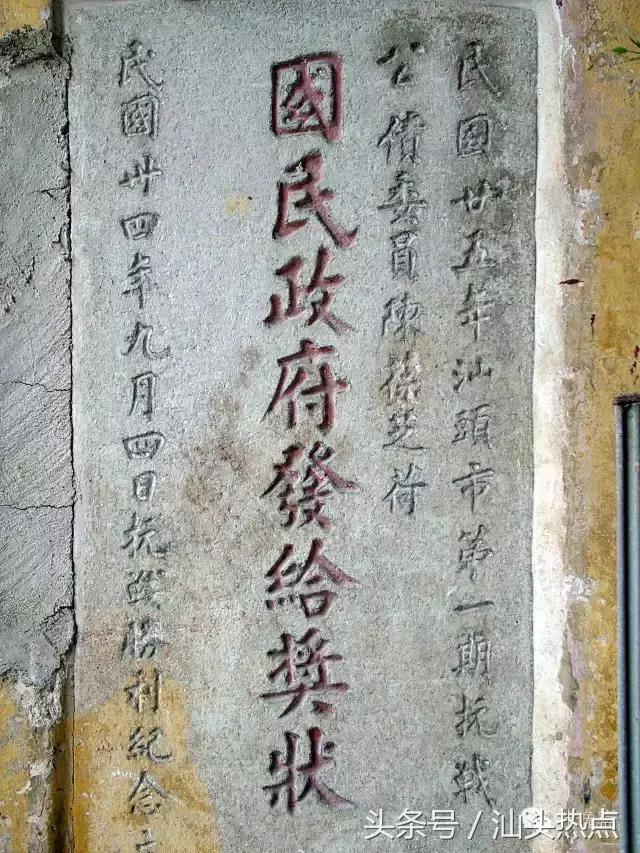 民國廿五年汕頭市第一期抗战
公債委員陳孫芝荷
國民政府發給獎狀
民國卅四年九月四日抗战勝利紀念
头条号／汕头热点